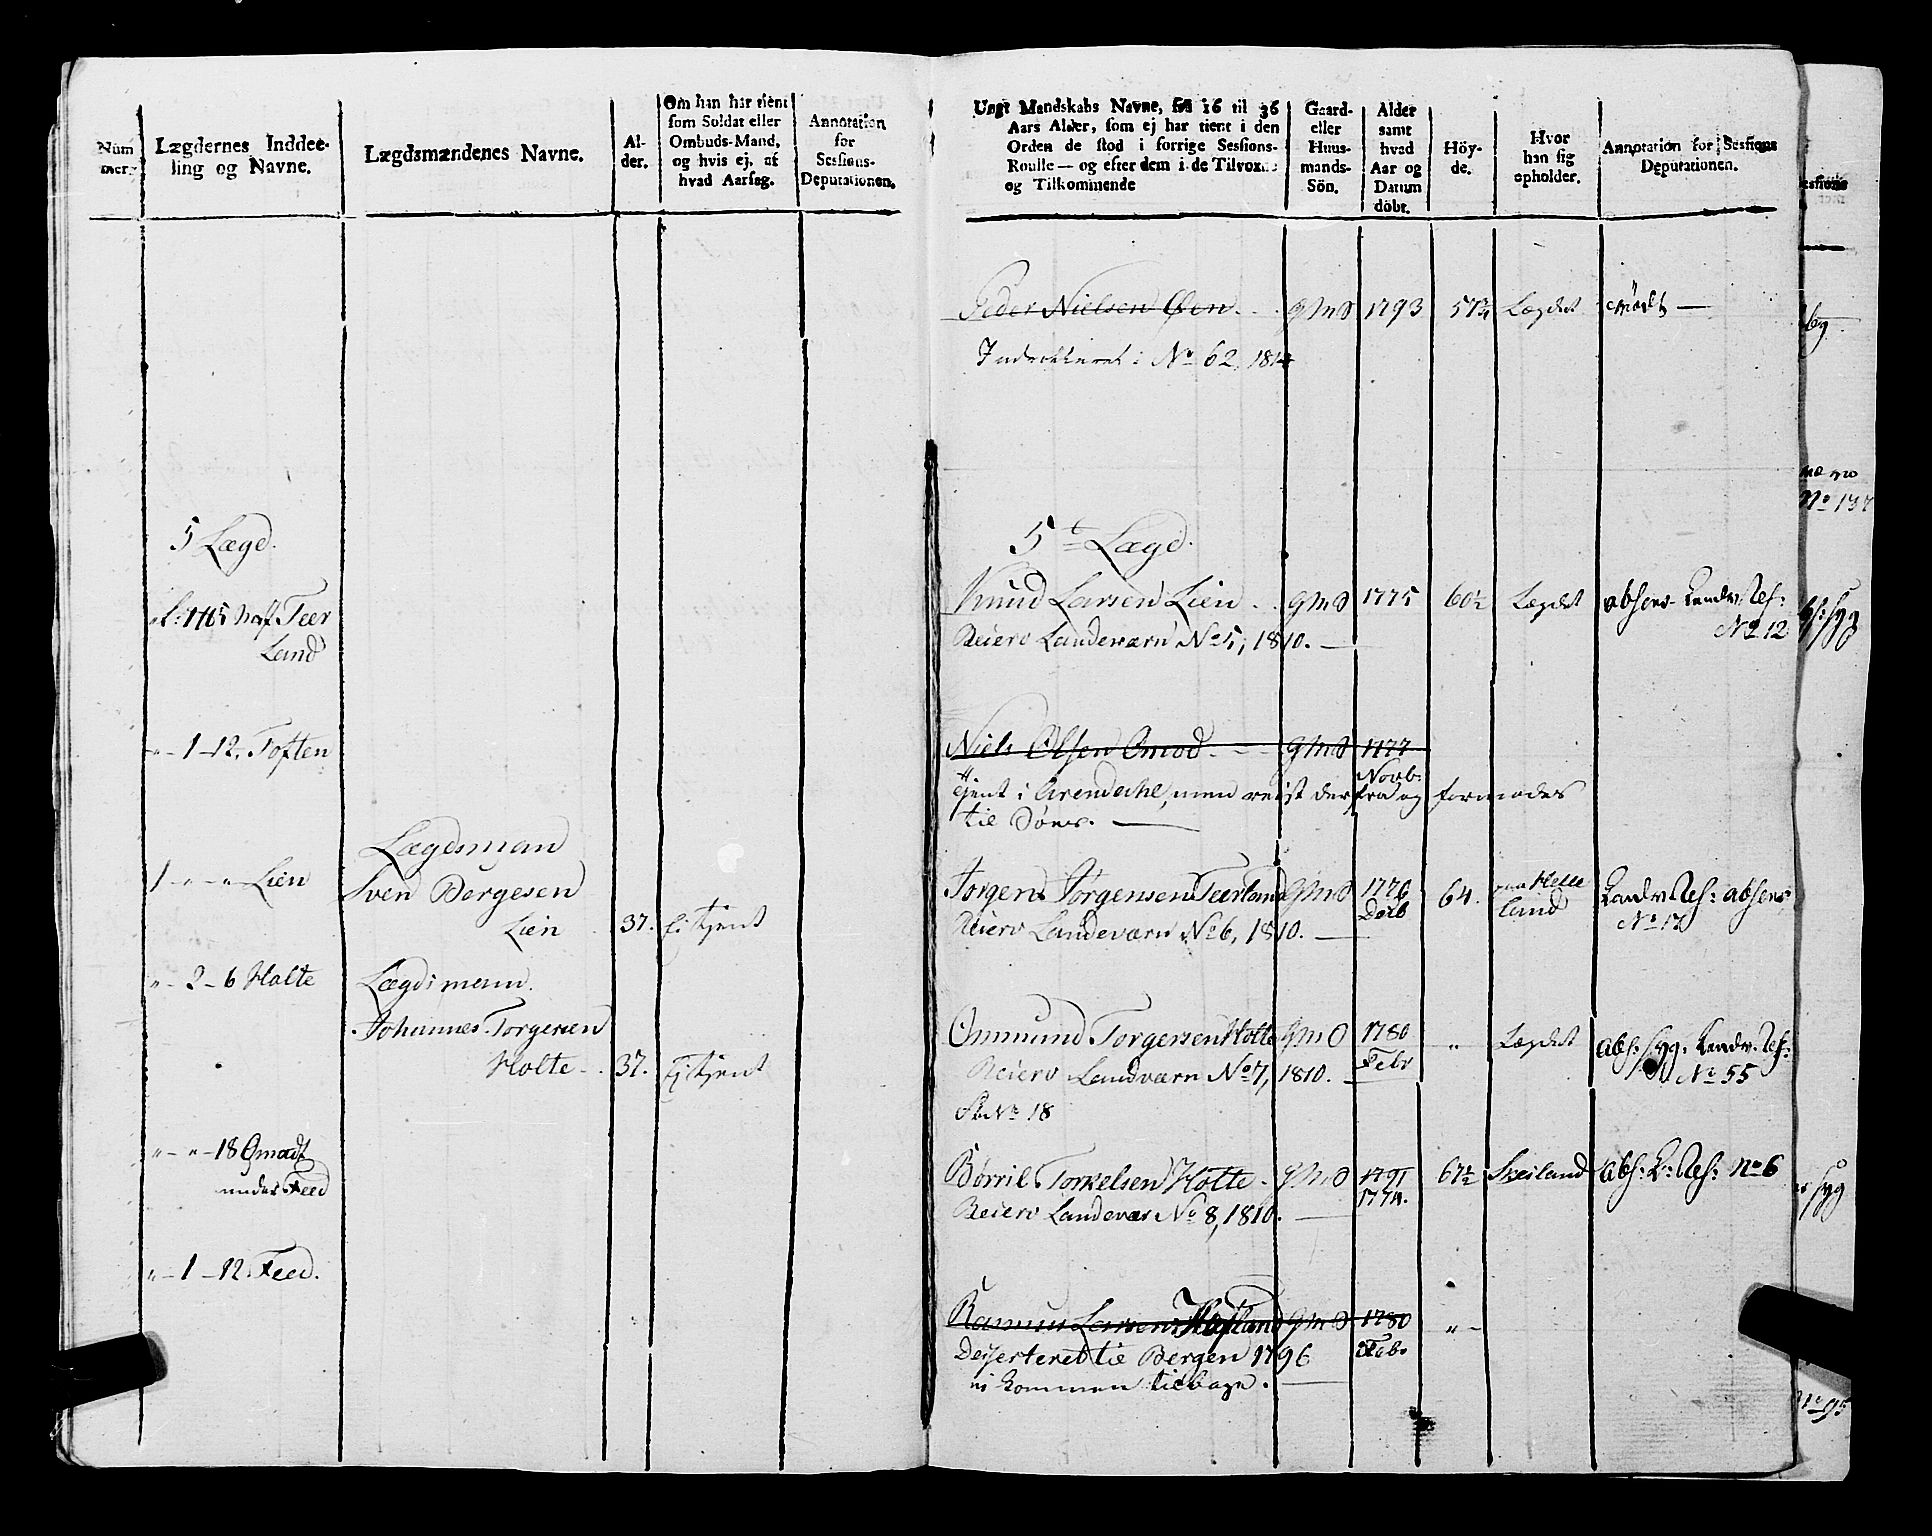 Num
mer.
Lægdernes Inddee-
ling og Navne.
Lægdsmændenes Navne.
Al-
der.
Om han har tient
som Soldat eller
Ombuds-Mand,
og hvis ej, af
hvad Aarsag.
Annotation
for
Sessions-
Deputationen.
5 Lægd.
Teer
Land
"-1-12. Toften
1-"-" Lien
Lægdsman
Sven Børgesen
Lien
37.
Ei tjent
"-2-6 Holte
Lægdsmann.
Johannes Torgersen
Holte
37.
Ej tjent
"-"-18 Omodt
under Feed
"-1-12. Feed.
Ungt Mandskabs Navne, fra 16 til 36
Aars Alder, som ej har tient i den
Orden de stod i forrige Sessions-
Roulle — og efter dem i de Tilvoxne
og Tilkommende
Gaard-
eller
Huus-
mands-
Sön.
Alder
samt
hvad
Aar og
Datum
döbt.
Höy-
de.
Hvor
han sig
opholder.
Annotation for Sessions
Deputationen.
Peder Nielsen Øen. gmS 1793 57¾ Lægdet mödt —
i No 62, 1814
5te Lægd.
Knud Larsen Lien. gmS 1775 60½ Lægdet absens Landv. Res:
No 12
Reierv Landeværn No 5, 1810. —
Niels Olsen Omod. gmS 1777
Novb.
tjent i Arendahl, men reist derfra og formodes
til Søres. —
Jørgen Jørgensen Teerland gmS 1776 64. paa Helle
Decb land Landv. Res: absens
No 13
Reierv Landeværn No 6, 1810. —
Onmund Torgersen Holte gmS 1780 " Lægdet abs: syg. Landv. Res:
Febr No 55
Reierv Landværn No 7, 1810. —
No 18
Børril Torkelsen Holte. gmS 1791 67½ Skeiland abs: L: Res: No 6
1774.
Reierv Landevær No 8, 1810. —
Rasmus Larsen gmS 1780 "-
Febr
Desserteret til Bergen 1796
ei kommen tilbage. —
No 137
syg
syg
No 95